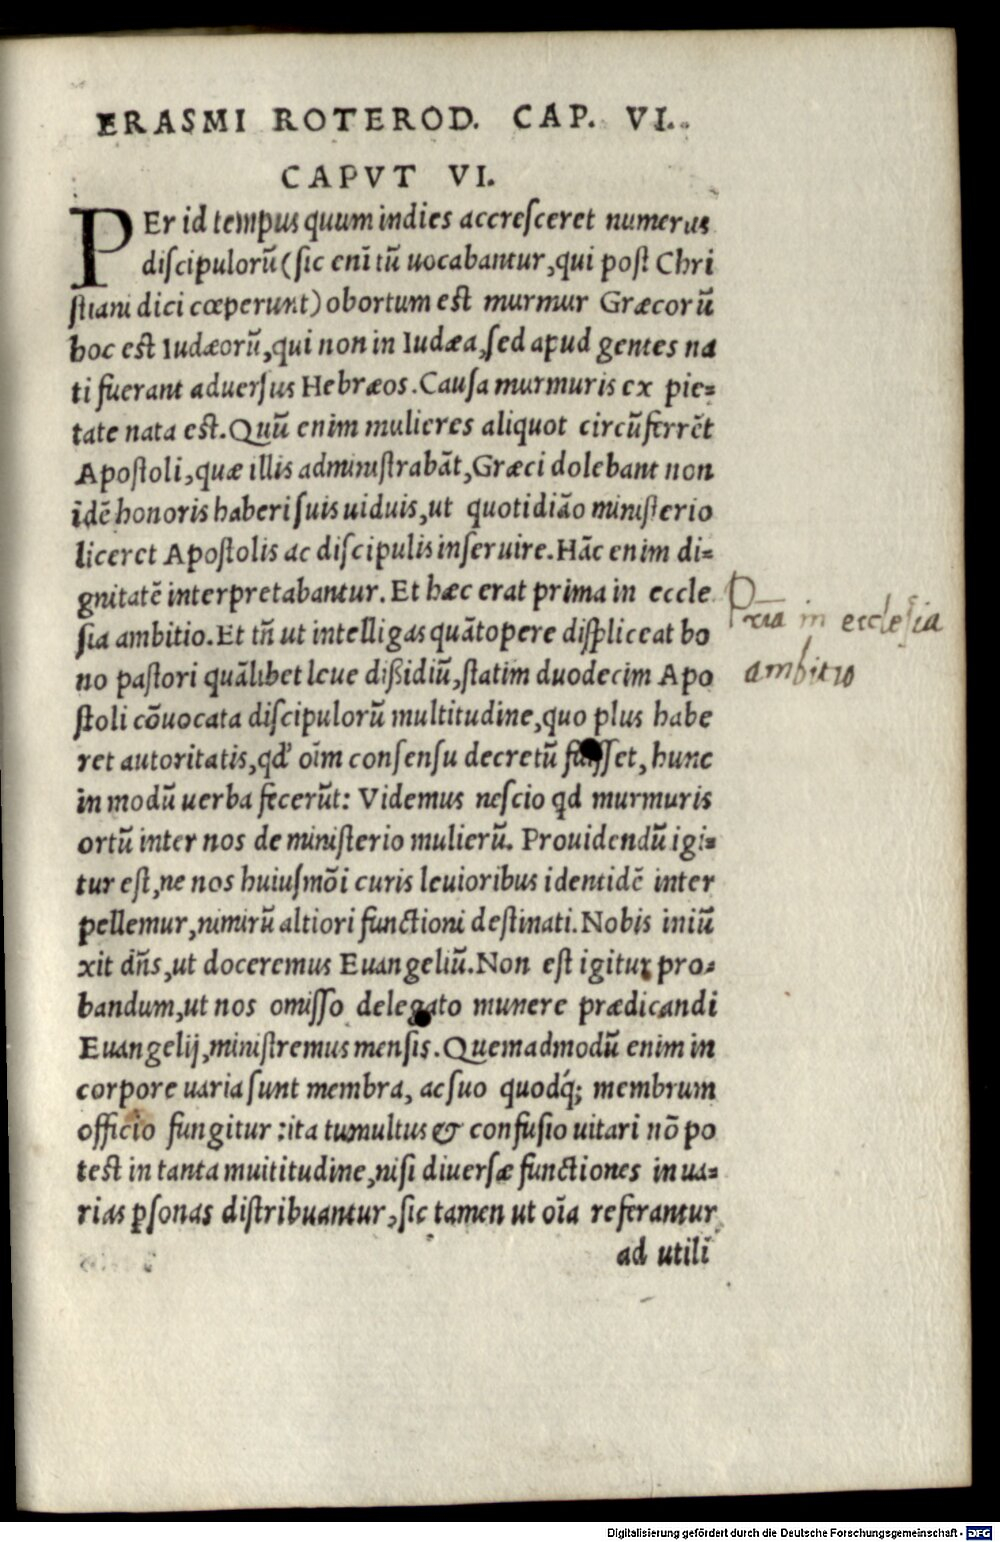 ERASMI ROTEROD. CAP. VI.
CAPVT VI.
PEr id tempus quum indies accresceret numerus
discipulorũ (sic enĩ tũ uocabantur, qui post Chri
stiani dici cœperunt) obortum est murmur Græcorũ
hoc est Iudæorũ, qui non in Iudæa, sed apud gentes na
ti fuerant aduersus Hebræos. Causa murmuris ex pie=
tate nata est. Quũ enim mulieres aliquot circũferrẽt
Apostoli, quæ illis administrabãt, Græci dolebant non
idẽ honoris haberi suis uiduis, ut quotidião ministerio
liceret Apostolis ac discipulis inseruire. Hãc enim di=
gnitatẽ interpretabantur. Et hæc erat prima in eccle
sia ambitio. Et tñ ut intelligas quãtopere displiceat bo
no pastori quãlibet leue dißidiũ, statim duodecim Apo
stoli cõuocata discipulorũ multitudine, quo plus habe
ret autoritatis, qd' oĩm consensu decretũ fuisset, hunc
in modũ uerba fecerũt: Videmus nescio qd murmuris
ortũ inter nos de ministerio mulierũ. Prouidendũ igi=
tur est, ne nos huiusmõi curis leuioribus identidẽ inter
pellemur, nimirũ altiori functioni destinati. Nobis iniũ
xit dñs, ut doceremus Euangeliũ. Non est igitur pro=
bandum, ut nos omisso delegato munere prædicandi
Euangelij, ministremus mensis. Quemadmodũ enim in
corpore uaria sunt membra, ac suo quodq; membrum
officio fungitur: ita tumultus & confusio uitari nõ po
test in tanta muititudine, nisi diuersæ functiones in ua=
rias ꝑsonas distribuantur, sic tamen ut oĩa referantur
ad utili
in ecclesia
ambitio
Digitalisierung gefördert durch die Deutsche Forschungsgemeinschaft - DFG